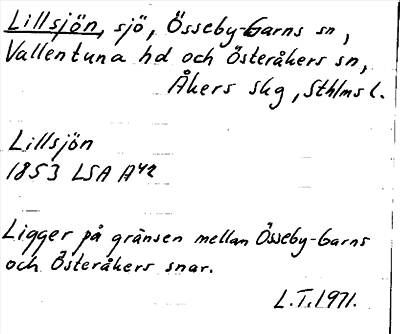 Lillsjön, sjö, Össeby-Garns sn,
Vallentuna hd och Österåkers sn,
Åkers skg, Sthlms l.
Lillsjön
1853 LSA A42
Ligger på gränsen mellan Össeby-Garns
och Österåkers snar.
L.T. 1971.